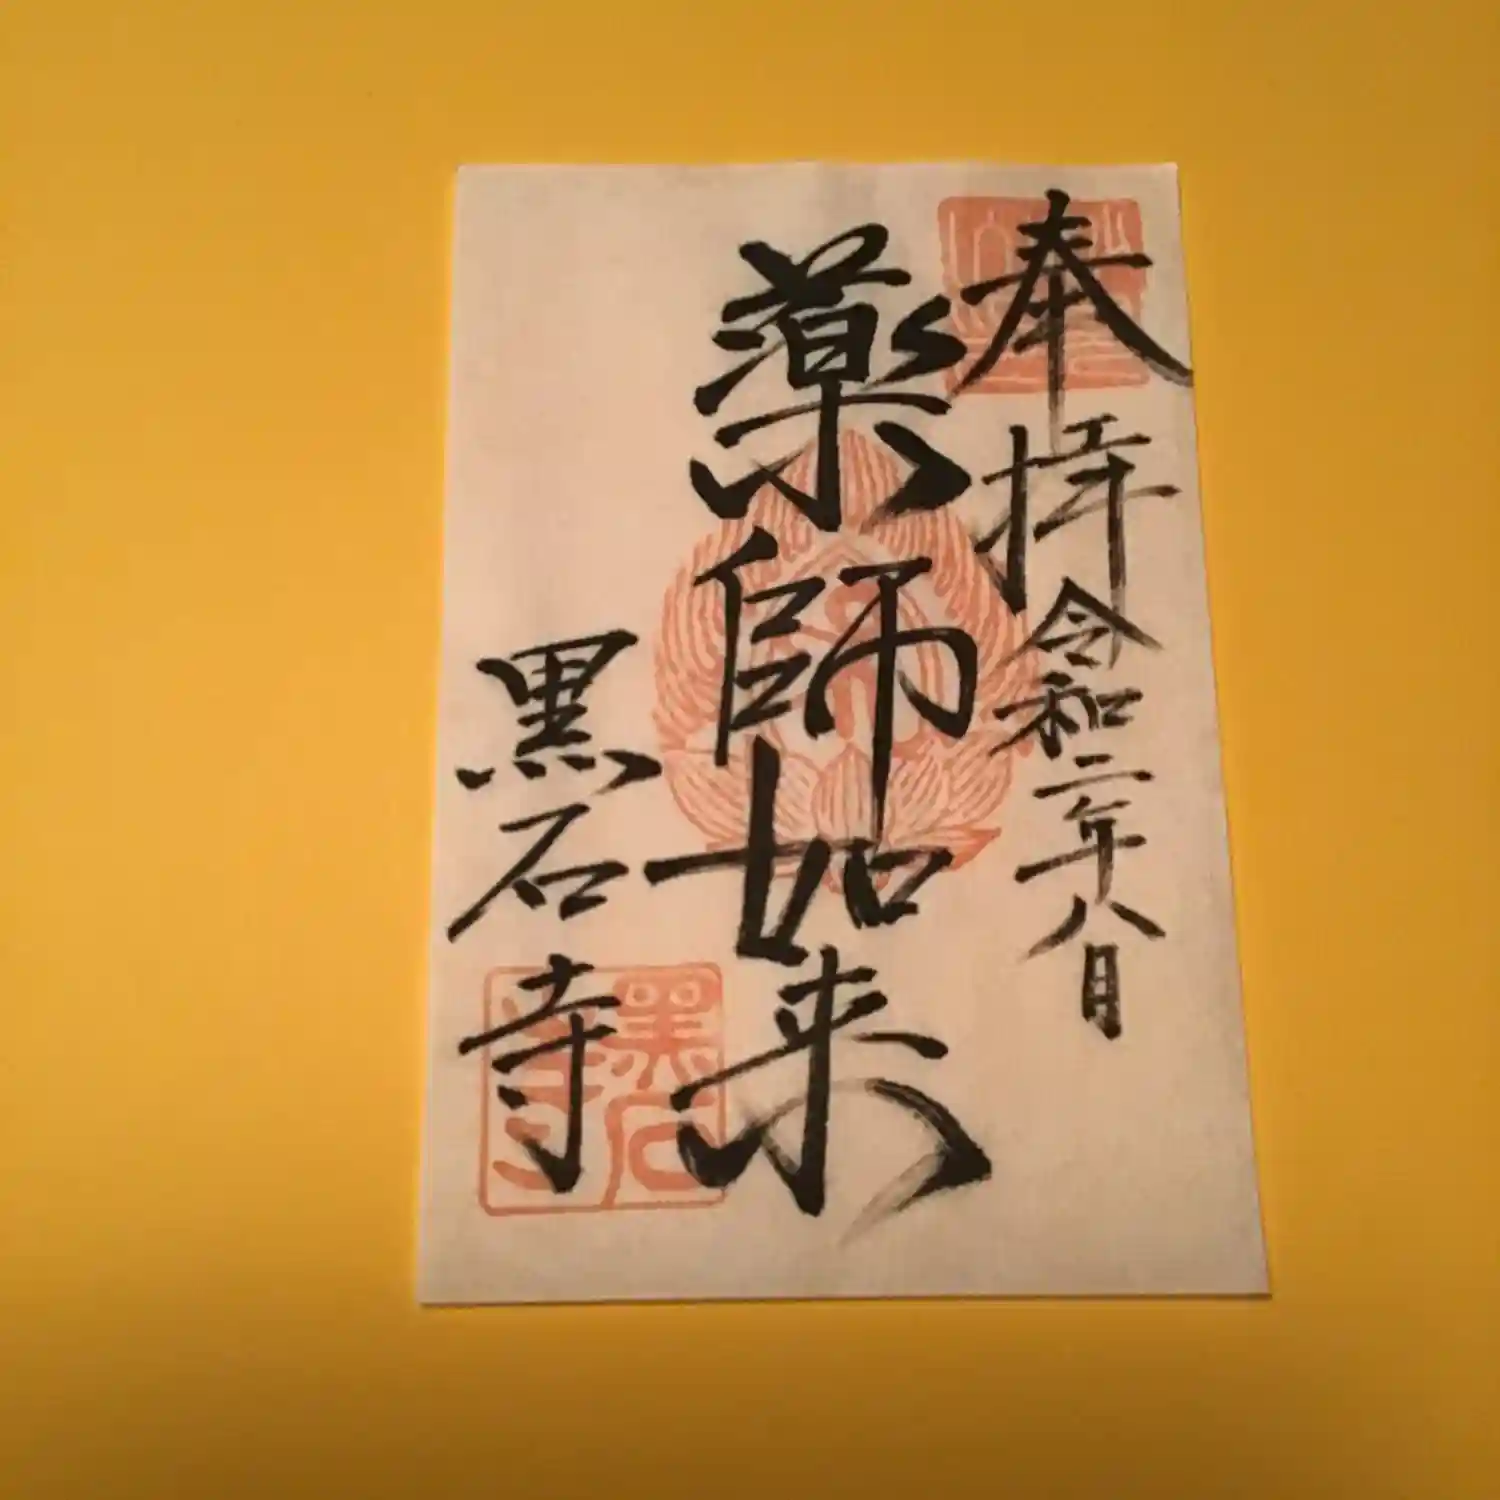 奉拝 令和二年八月
薬師如来
黒石寺
黒石寺